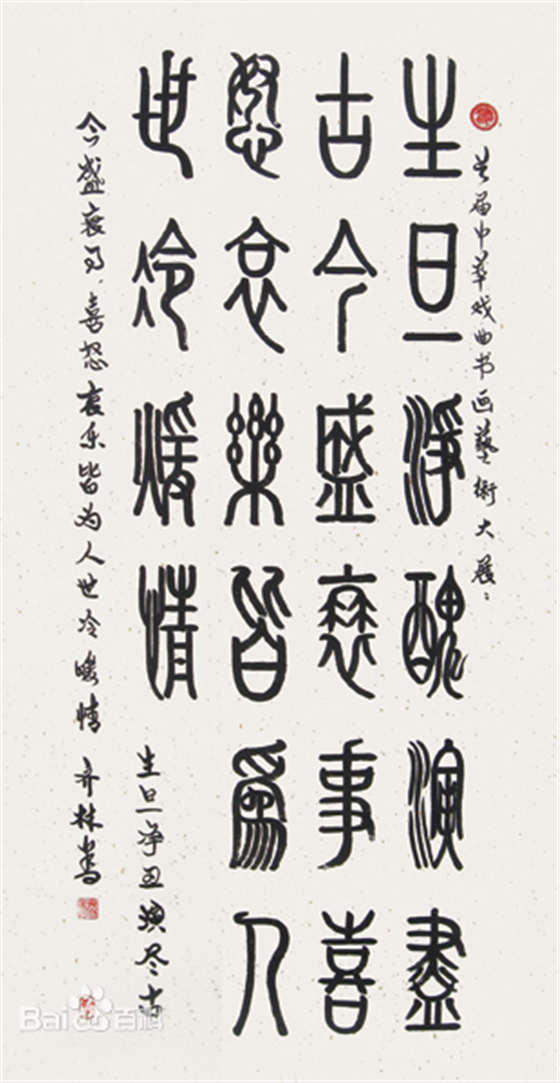 首届中華戏曲书画藝術大展
生旦淨醜演盡
古今盛衰事喜
怒哀樂皆爲人
世冷煖情
生旦净丑演尽古
今盛衰事喜怒哀乐皆为人世冷暖情 齐林
Bai百科